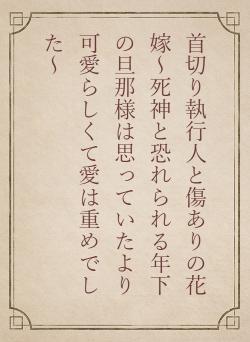 首切り執行人と傷ありの花
嫁～死神と恐れられる年下
の旦那様は思っていたより
可愛らしくて愛は重めでし
た～